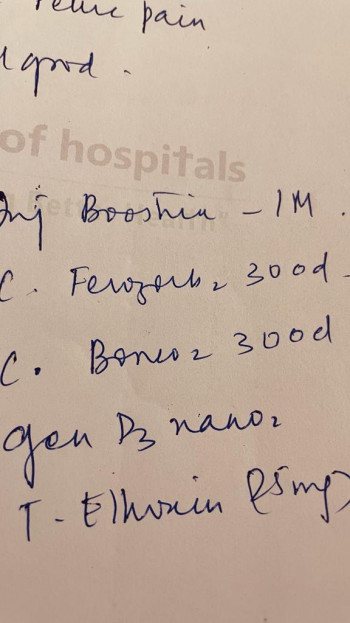 pain
good .
of hospitals
Inj Boostin - IM .
C. Ferozorb 2 30 od -
C. Boneo 2 30 od
gen D3 nano 2
T - (5mg)